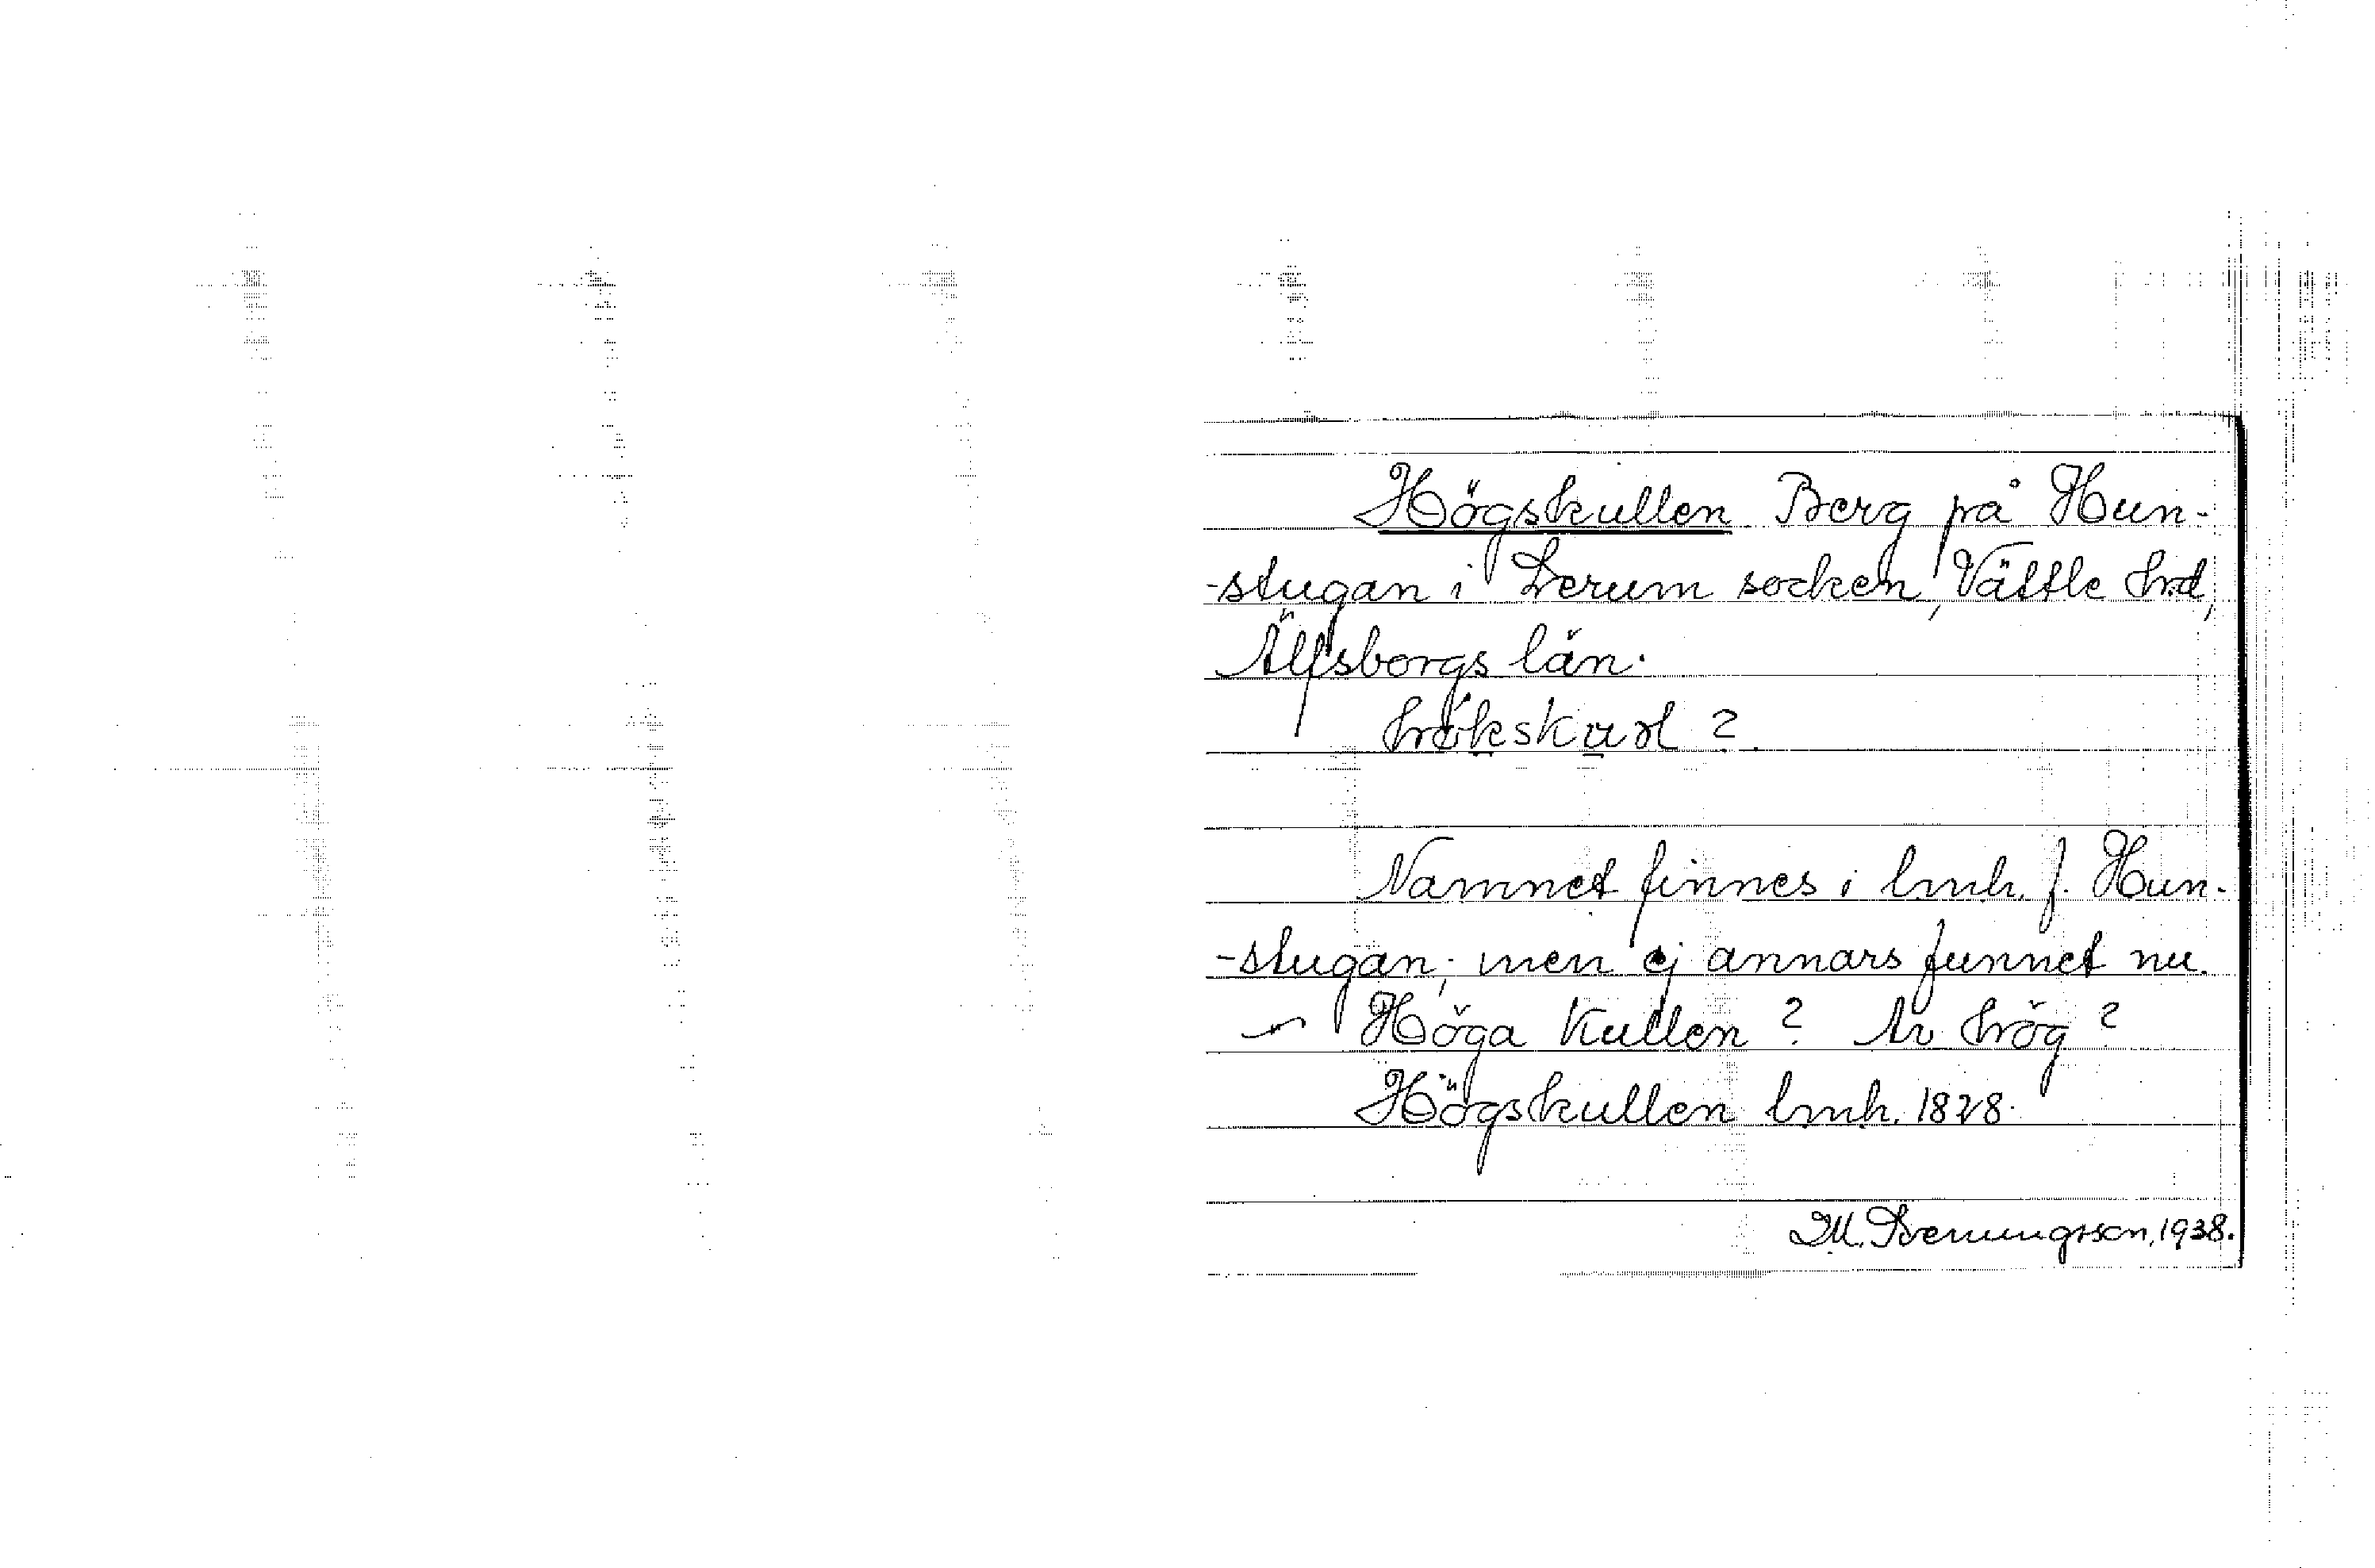 Högskullen Berg på Hun-
-stugan i Lerum socken, Vättle hrd,
Älfsborgs län.
Namnet finnes i lmh. f. Hun-
-stugan; men ej annars funnet nu.
Höga Kullen? Av hög?
Högskullen lmh. 1828.
M. 1938.